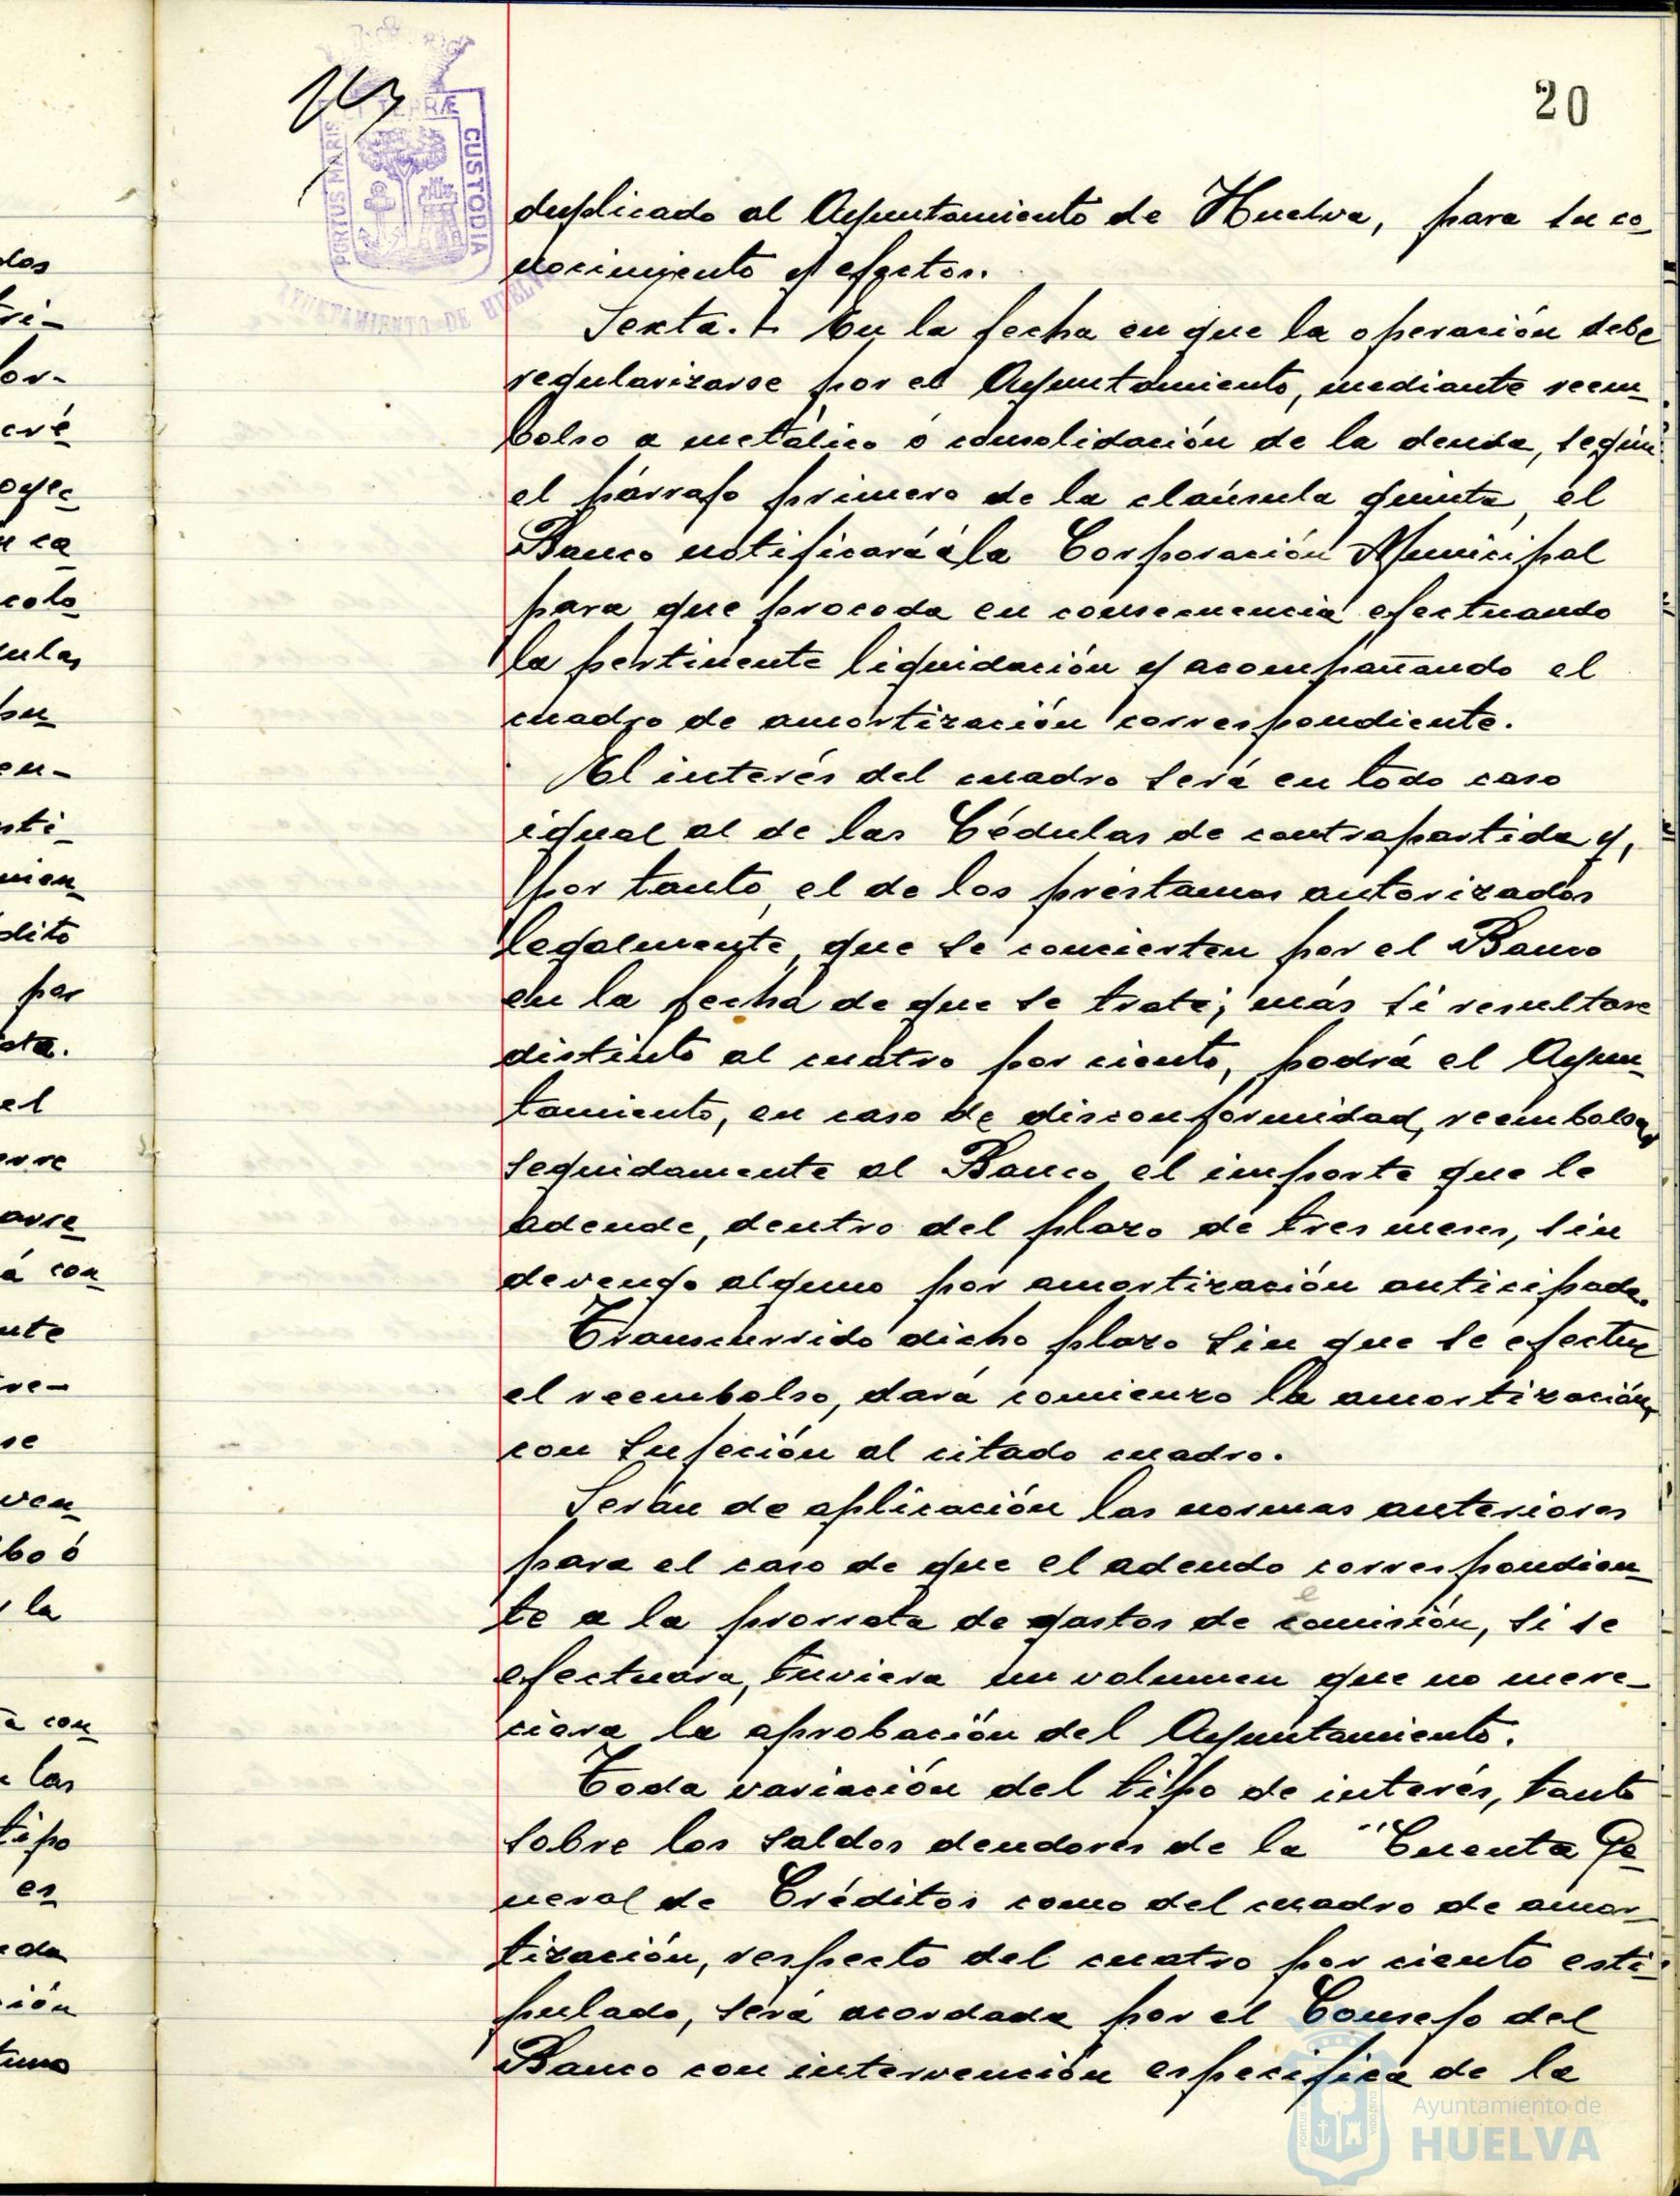 20
PORTUS MARIS ET TERRÆ CUSTODIA
AYUNTAMIENTO DE HUELVA
duplicado al Ayuntamiento de Huelva, para su co_
nocimiento y efectos.
Sexta. - En la fecha en que la operación debe
regularizarse por el Ayuntamiento, mediante reem_
bolso a metálico ó consolidación de la deuda, según
el párrafo primero de la claúsula quinta, el
Banco notificará á la Corporación Municipal
para que proceda en consecuencia efectuando
la pertinente liquidación y acompañando el
cuadro de amortización correspondiente.
El interés del cuadro será en todo caso
igual al de las Cédulas de contrapartida y,
por tanto, el de los préstamos autorizados
legalmente, que se concierten por el Banco
en la fecha de que se trate; más si resultare
distinto al cuatro por ciento, podrá el Ayun_
tamiento, en caso de disconformidad, reembolsar
seguidamente al Banco el importe que le
adeude, dentro del plazo de tres meses, sin
devengo alguno por amortización anticipada.
Transcurrido dicho plazo sin que se efectue
el reembolso, dará comienzo la amortización,
con sujeción al citado cuadro.
Serán de aplicación las normas anteriores
para el caso de que el adeudo correspondien_
te a la prorrata de gastos de emisión, si se
efectuara, tuviera un volumen que no mere_
ciera la aprobación del Ayuntamiento.
Toda variación del tipo de interés, tanto
sobre los saldos deudores de la "Cuenta Ge_
neral de Créditos como del cuadro de amor_
tización, respecto del cuatro por ciento esti_
pulado, será acordada por el Consejo del
Banco con intervención especifica de la
Ayuntamiento de
HUELVA